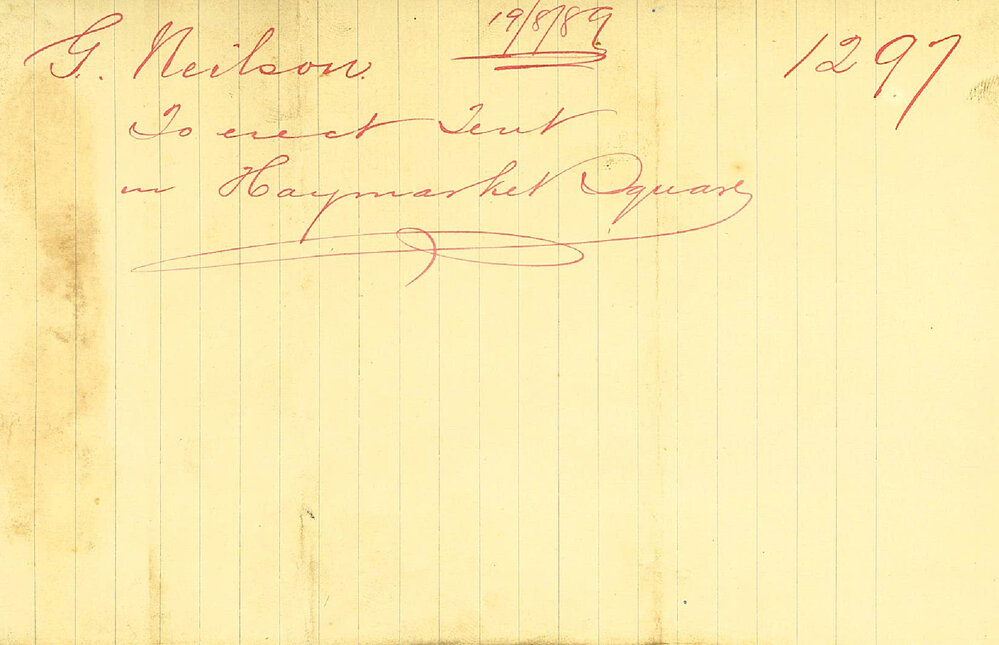 19/8/89.
G. Neilson. 1297
To erect Tent
in Haymarket Square